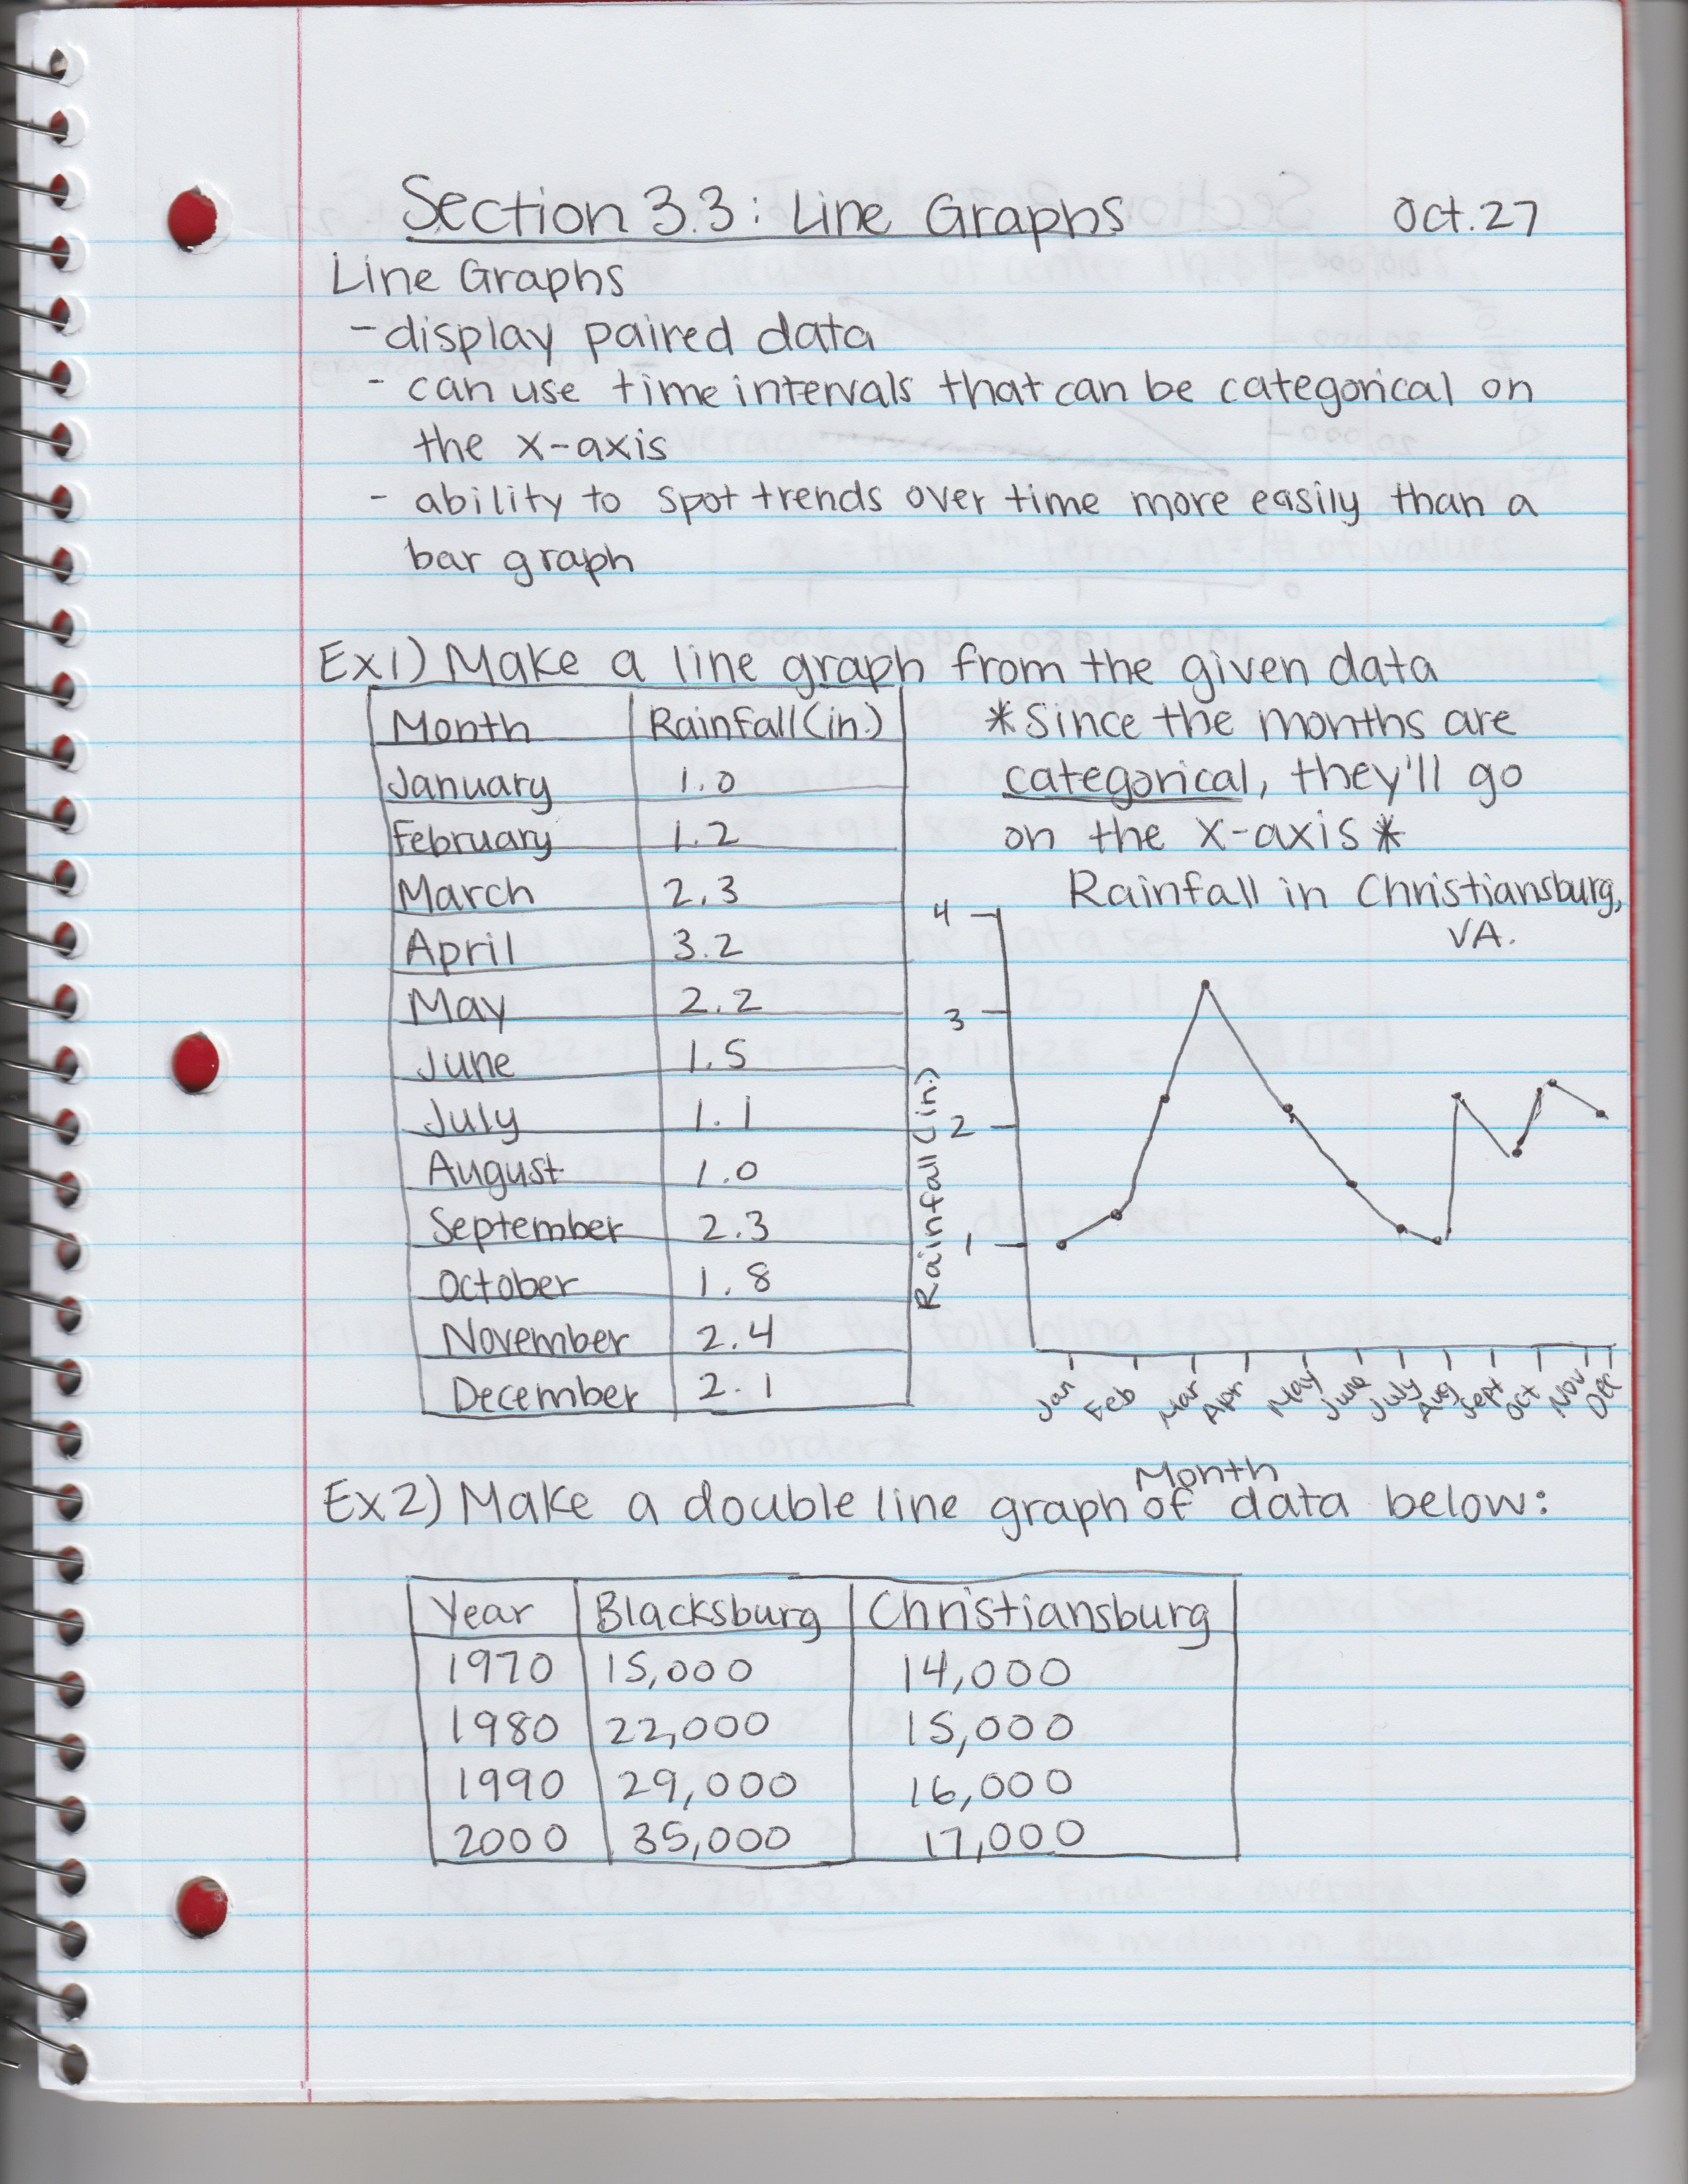 Section 3.3: Line Graphs Oct. 27
Line Graphs
- display paired data
- can use time intervals that can be categorical on
the x-axis
- ability to spot trends over time more easily than a
bar graph
Ex1) Make a line graph from the given data
Month Rainfall (in.)
January 1.0
February 1.2
March 2.3
April 3.2
May 2.2
June 1.5
July 1.1
August 1.0
September 2.3
October 1.8
November 2.4
December 2.1
*Since the months are
categorical, they'll go
on the x-axis*
Rainfall in Christiansburg,
VA.
4
3
2
1
Rainfall (in.)
Jan Feb Mar Apr May June July Aug Sept Oct Nov Dec
Month
Ex2) Make a double line graph of data below:
Year Blacksburg Christiansburg
1970 15,000 14,000
1980 22,000 15,000
1990 29,000 16,000
2000 35,000 17,000